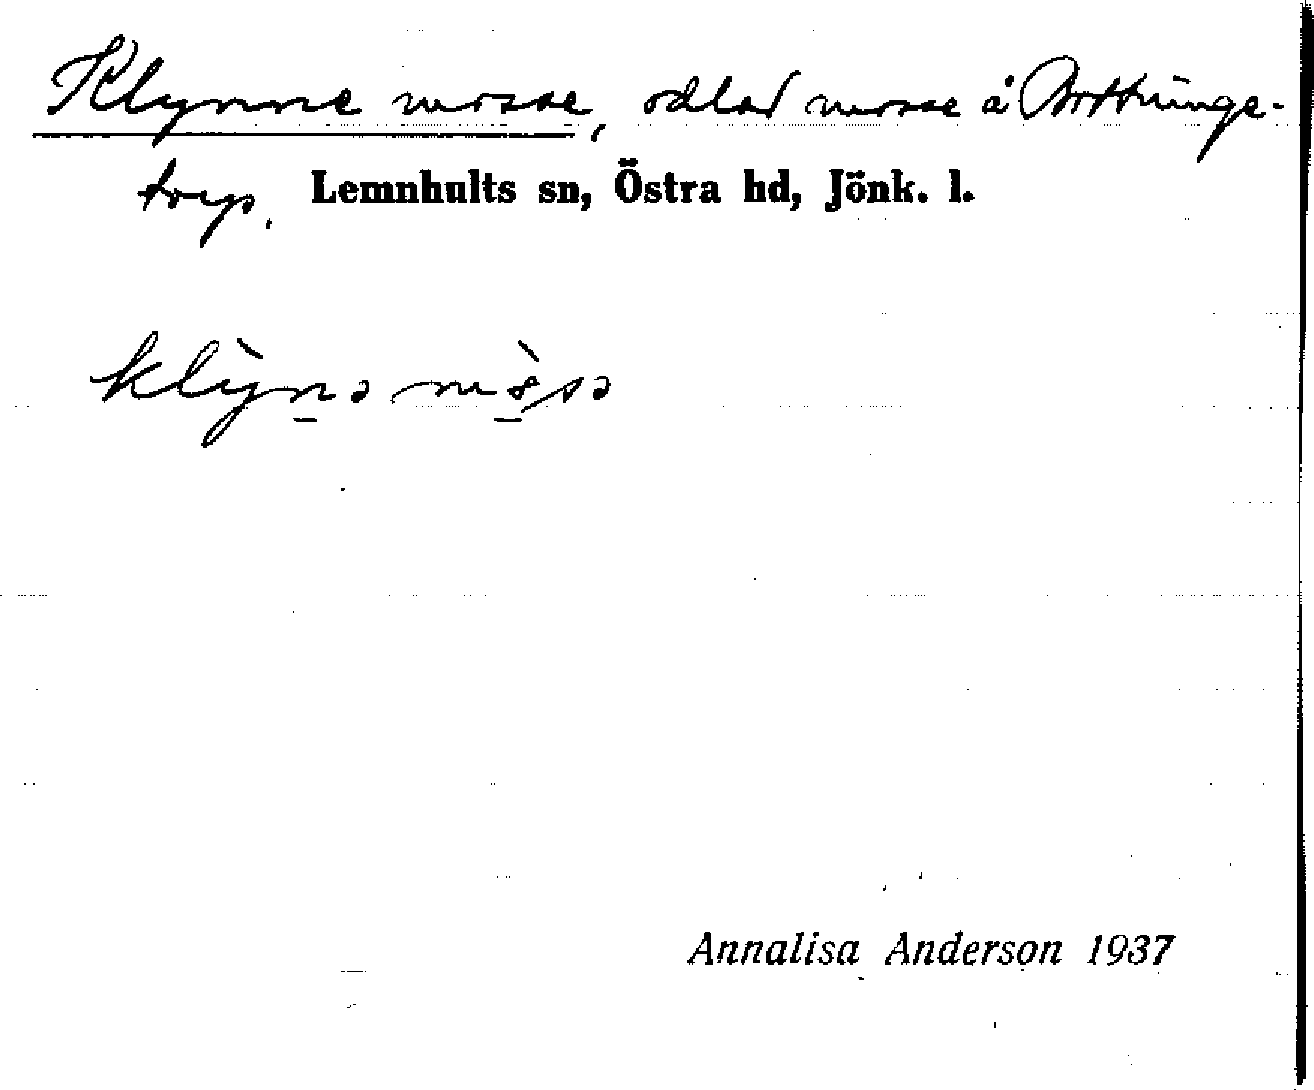 Klynne mosse, odlad mosse å Bottringe-
torp. Lemnhults sn, Östra hd, Jönk. l.
klỳnə mòsə
Annalisa Anderson 1937